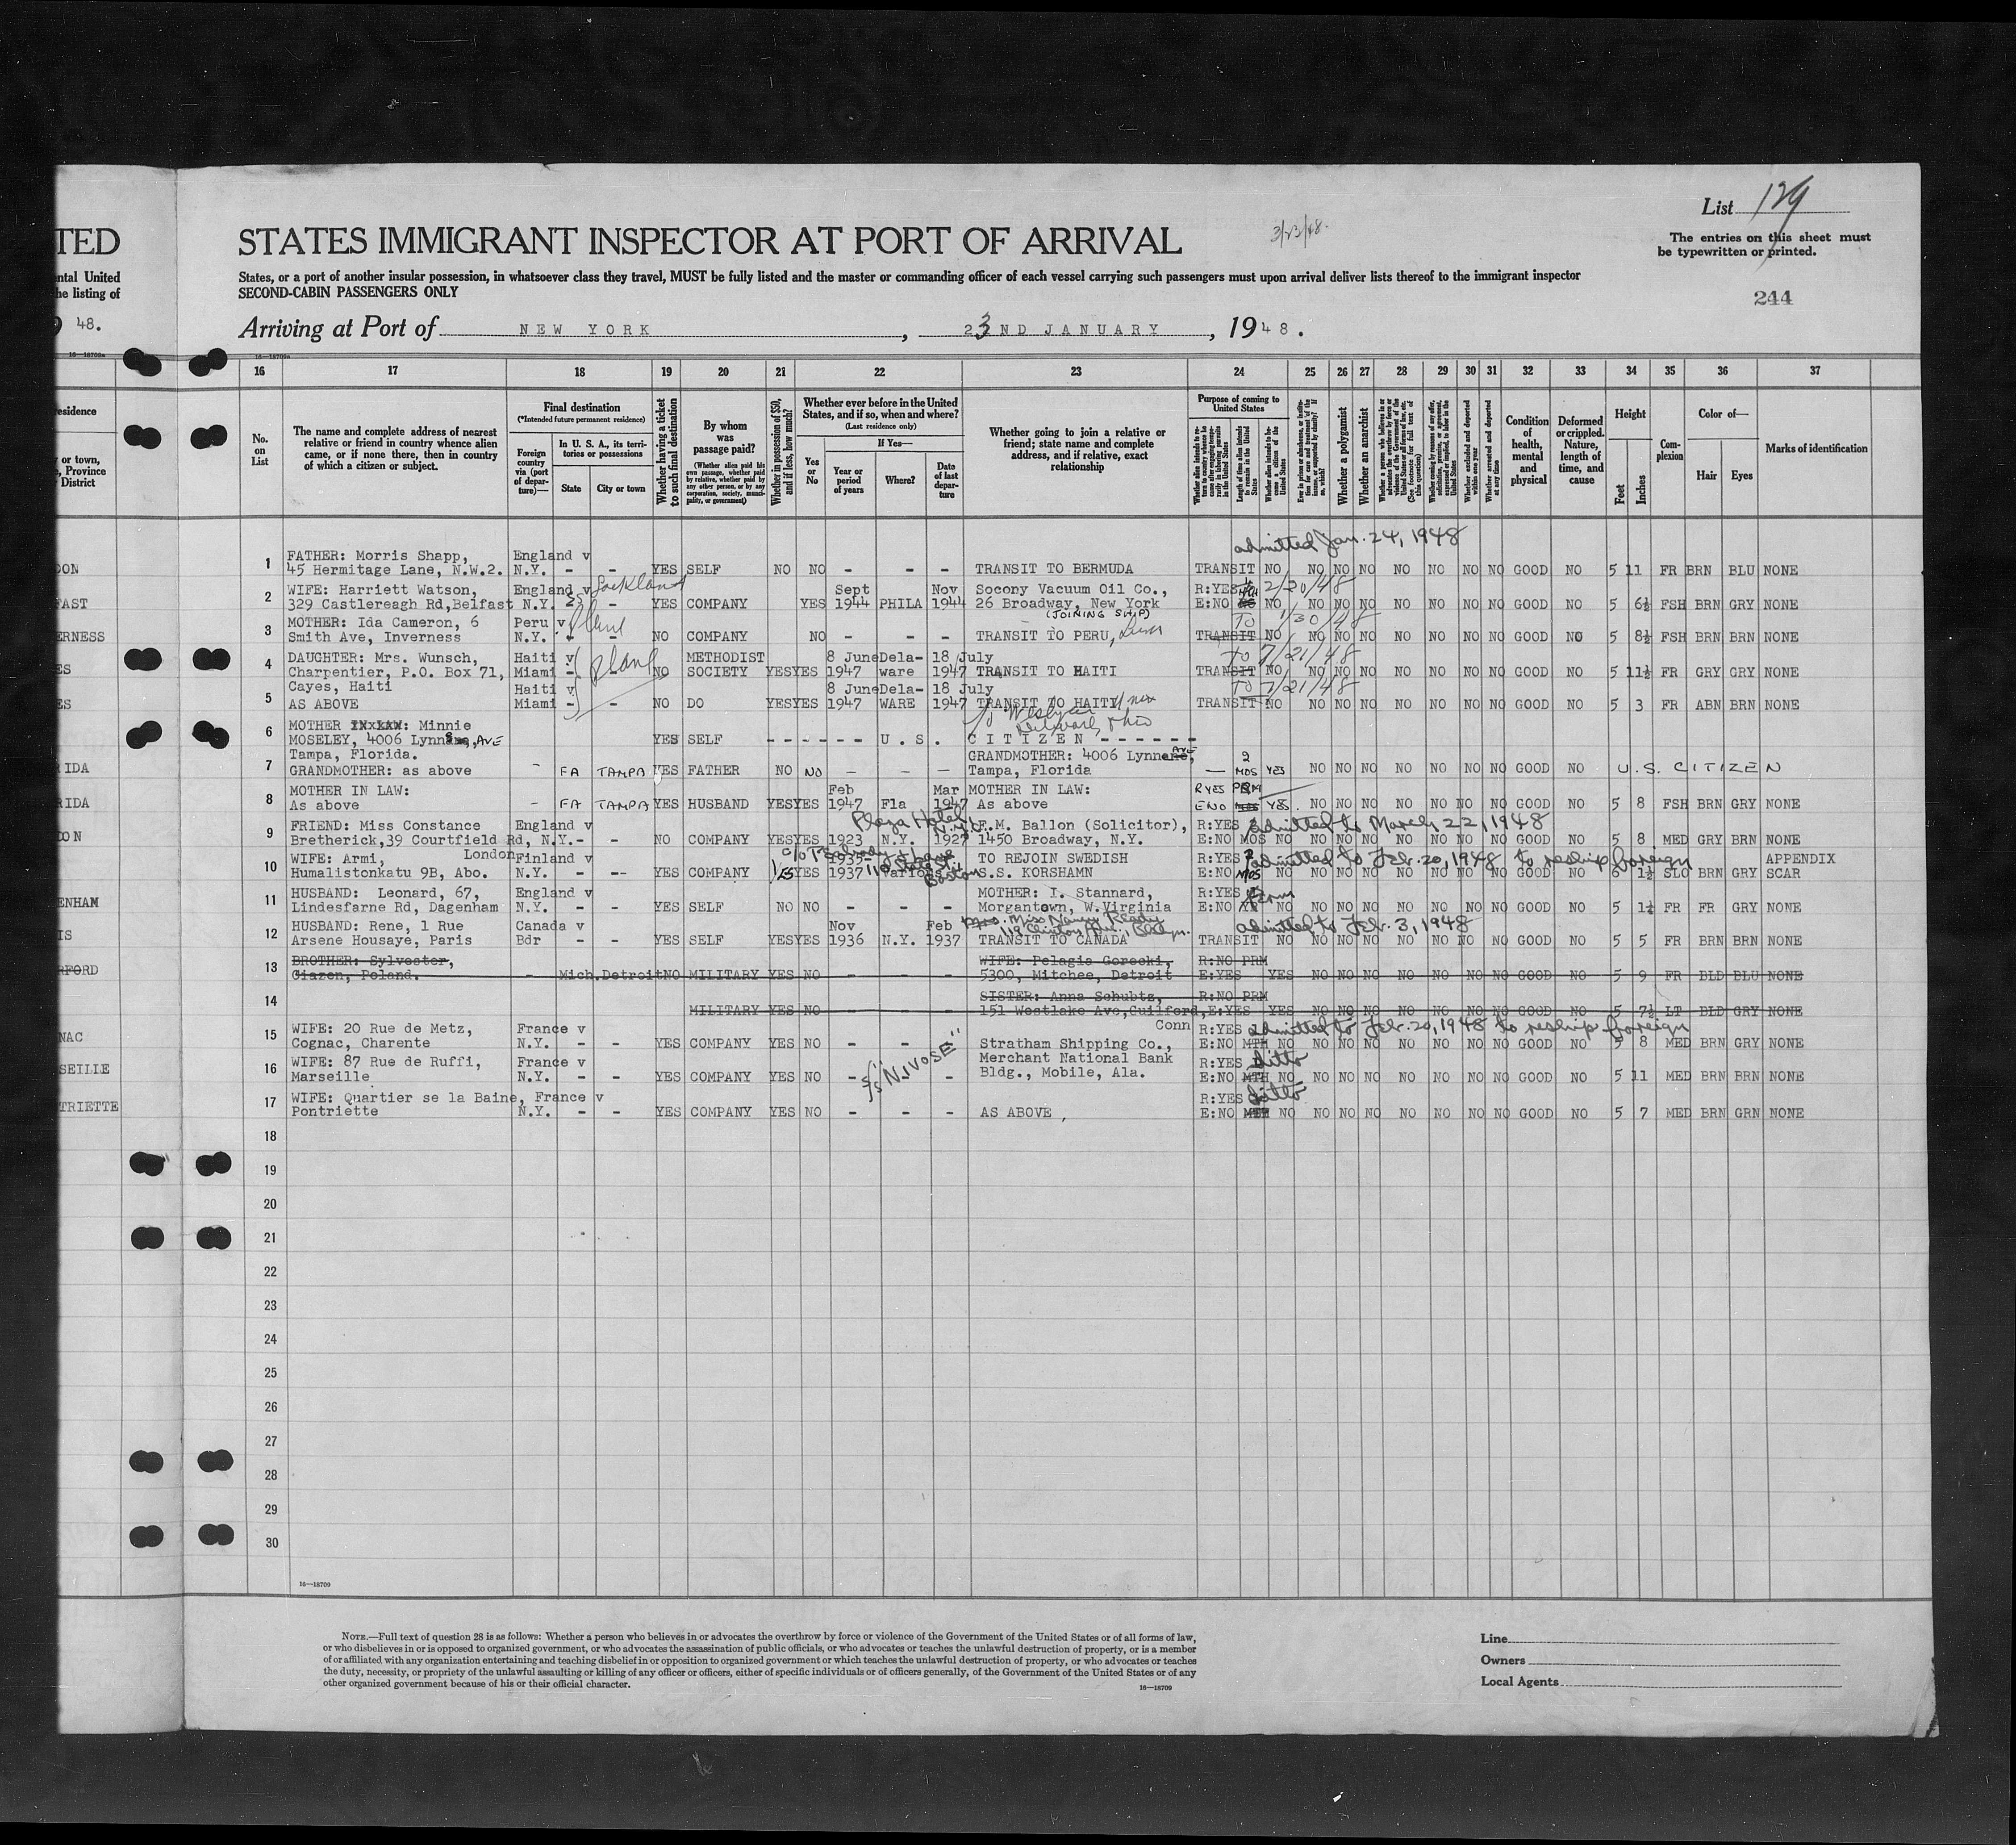 List 129
TED
STATES IMMIGRANT INSPECTOR AT PORT OF ARRIVAL
3/23/48.
The entries on this sheet must
be typewritten or printed.
ntal United
he listing of
States, or a port of another insular possession, in whatsoever class they travel, MUST be fully listed and the master or commanding officer of each vessel carrying such passengers must upon arrival deliver lists thereof to the immigrant inspector
SECOND-CABIN PASSENGERS ONLY
244
48.
Arriving at Port of NEW YORK, 23ND JANUARY, 1948.
16—18709a
16 17 18 19 20 21 22 23 24 25 26 27 28 29 30 31 32 33 34 35 36 37
esidence
or town,
, Province
District
No. on List
The name and complete address of nearest relative or friend in country whence alien came, or if none there, then in country of which a citizen or subject.
Final destination
(*Intended future permanent residence)
Foreign country via (port of departure)—
In U. S. A., its territories or possessions
State
City or town
Whether having a ticket to such final destination
By whom was passage paid?
(Whether alien paid his own passage, whether paid by relative, whether paid by any other person, or by any corporation, society, municipality, or government)
Whether in possession of $50, and if less, how much?
Whether ever before in the United States, and if so, when and where?
(Last residence only)
Yes or No
If Yes—
Year or period of years
Where?
Date of last departure
Whether going to join a relative or friend; state name and complete address, and if relative, exact relationship
Purpose of coming to United States
Length of time alien intends to remain in the United States
Whether a polygamist
Whether an anarchist
Condition of health, mental and physical
Deformed or crippled. Nature, length of time, and cause
Height
Feet
Inches
Complexion
Color of—
Hair
Eyes
Marks of identification
admitted Jan. 24, 1948
DON
1 FATHER: Morris Shapp, England v
45 Hermitage Lane, N.W.2. N.Y. - - YES SELF NO NO - - - TRANSIT TO BERMUDA TRANSIT NO NO NO NO NO NO NO NO GOOD NO 5 11 FR BRN BLU NONE
FAST
2 WIFE: Harriett Watson, England v Sept Nov Socony Vacuum Oil Co., R:YES 2/20/48
329 Castlereagh Rd, Belfast N.Y. - YES COMPANY YES 1944 PHILA 1944 26 Broadway, New York E:NO NO NO NO NO NO NO NO NO GOOD NO 5 6½ FSH BRN GRY NONE
(JOINING SHIP)
ERNESS
3 MOTHER: Ida Cameron, 6 Peru v Plane TO 1/30/48
Smith Ave, Inverness N.Y. - - NO COMPANY NO - - - TRANSIT TO PERU, TRANSIT NO NO NO NO NO NO NO NO GOOD NO 5 8½ FSH BRN BRN NONE
ES
4 DAUGHTER: Mrs. Wunsch, Haiti v plane METHODIST 8 June Dela- 18 July TO 7/21/48
Charpentier, P.O. Box 71, Miami - - NO SOCIETY YES YES 1947 ware 1947 TRANSIT TO HAITI TRANSIT NO NO NO NO NO NO NO NO GOOD NO 5 11½ FR GRY GRY NONE
ES
5 Cayes, Haiti Haiti v 8 June Dela- 18 July TO 7/21/48
AS ABOVE Miami - - NO DO YES YES 1947 WARE 1947 TRANSIT TO HAITI TRANSIT NO NO NO NO NO NO NO NO GOOD NO 5 3 FR ABN BRN NONE
Delaware, Ohio
6 MOTHER IN LAW: Minnie
MOSELEY, 4006 Lynn AVE YES SELF - - - - - - U.S. CITIZEN - - - - - -
Tampa, Florida.
IDA
7 GRANDMOTHER: 4006 Lynn AVE, 2
GRANDMOTHER: as above - FA TAMPA YES FATHER NO NO - - - Tampa, Florida — MOS YES NO NO NO NO NO NO NO GOOD NO U.S. CITIZEN
IDA
8 MOTHER IN LAW: Feb Mar MOTHER IN LAW: R YES PRM
As above - FA TAMPA YES HUSBAND YES YES 1947 Fla 1947 As above E NO YES. NO NO NO NO NO NO NO GOOD NO 5 8 FSH BRN GRY NONE
Plaza Hotel
N.Y.
ON
9 FRIEND: Miss Constance England v F.M. Ballon (Solicitor), R:YES admitted to March 22, 1948
Bretherick, 39 Courtfield Rd, N.Y. - - NO COMPANY YES YES 1923 N.Y. 1927 1450 Broadway, N.Y. E:NO MOS NO NO NO NO NO NO NO NO GOOD NO 5 8 MED GRY BRN NONE
London
10 WIFE: Armi, Finland v 1935- 110 State St. Boston TO REJOIN SWEDISH R:YES admitted to Feb. 20, 1948 to reship foreign APPENDIX
Humalistonkatu 9B, Abo. N.Y. - -- YES COMPANY YES YES 1937 S.S. KORSHAMN E:NO MOS NO NO NO NO NO NO NO NO GOOD NO 6 1½ SLO BRN GRY SCAR
ENHAM
11 HUSBAND: Leonard, 67, England v MOTHER: I. Stannard, R:YES Perm
Lindesfarne Rd, Dagenham N.Y. - - YES SELF NO NO - - - Morgantown, W.Virginia E:NO YR NO NO NO NO NO NO NO NO GOOD NO 5 1½ FR FR GRY NONE
Miss Nancy Ready
119 Clinton Ave., Bklyn.
IS
12 HUSBAND: Rene, 1 Rue Canada v Nov Feb admitted to Feb. 3, 1948
Arsene Housaye, Paris Bdr - - YES SELF YES YES 1936 N.Y. 1937 TRANSIT TO CANADA TRANSIT NO NO NO NO NO NO NO NO GOOD NO 5 5 FR BRN BRN NONE
RFORD
13 BROTHER: Sylvester, WIFE: Pelagia Gorecki, R:NO PRM
Giazen, Poland. - Mich. Detroit NO MILITARY YES NO - - - 5300, Mitchee, Detroit E:YES YES NO NO NO NO NO NO NO GOOD NO 5 9 FR BLD BLU NONE
14 SISTER: Anna Schubtz, R:NO PRM
MILITARY YES NO - - - 151 Westlake Ave, Guilford, E:YES YES NO NO NO NO NO NO NO GOOD NO 5 7½ LT BLD GRY NONE
Conn
NAC
15 WIFE: 20 Rue de Metz, France v R:YES admitted to Feb. 20, 1948 to reship foreign
Cognac, Charente N.Y. - - YES COMPANY YES NO - - - Stratham Shipping Co., E:NO MTH NO NO NO NO NO NO NO NO GOOD NO 5 8 MED BRN GRY NONE
S/S "NIVOSE"
SEILLE
16 WIFE: 87 Rue de Ruffi, France v Merchant National Bank R:YES ditto
Marseille N.Y. - - YES COMPANY YES NO - - - Bldg., Mobile, Ala. E:NO MTH NO NO NO NO NO NO NO NO GOOD NO 5 11 MED BRN BRN NONE
TRIETTE
17 WIFE: Quartier se la Baine, France v R:YES ditto
Pontriette N.Y. - - YES COMPANY YES NO - - - AS ABOVE, E:NO MTH NO NO NO NO NO NO NO NO GOOD NO 5 7 MED BRN GRN NONE
18
19
20
21
22
23
24
25
26
27
28
29
30
16—18709
NOTE.—Full text of question 28 is as follows: Whether a person who believes in or advocates the overthrow by force or violence of the Government of the United States or of all forms of law,
or who disbelieves in or is opposed to organized government, or who advocates the assassination of public officials, or who advocates or teaches the unlawful destruction of property, or is a member
of or affiliated with any organization entertaining and teaching disbelief in or opposition to organized government or which teaches the unlawful destruction of property, or who advocates or teaches
the duty, necessity, or propriety of the unlawful assaulting or killing of any officer or officers, either of specific individuals or of officers generally, of the Government of the United States or of any
other organized government because of his or their official character.
16—18709
Line
Owners
Local Agents